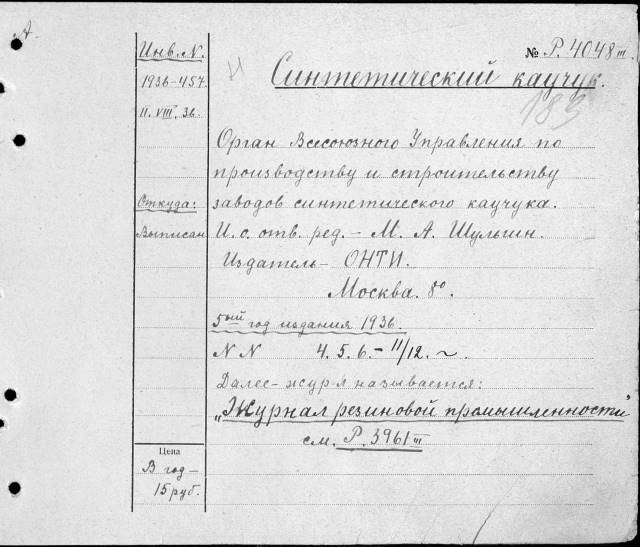 А.
Инв. N.
1936-457
11. VIII. 36.
Откуда:
Выписан
Цена
В год –
15 руб.
№ Р. 4048 III.
И
Синтетический каучук.
183
Орган Всесоюзного Управления по
производству и строительству
заводов синтетического каучука.
И. о. отв. ред. – М. А. Шульгин.
Издатель – ОНТИ.
Москва. 8°.
5ый год издания 1936.
N N 4. 5. 6. – 11/12. ~
Далее – жур-л называется:
„Журнал резиновой промышленности"
см. Р. 3961 III